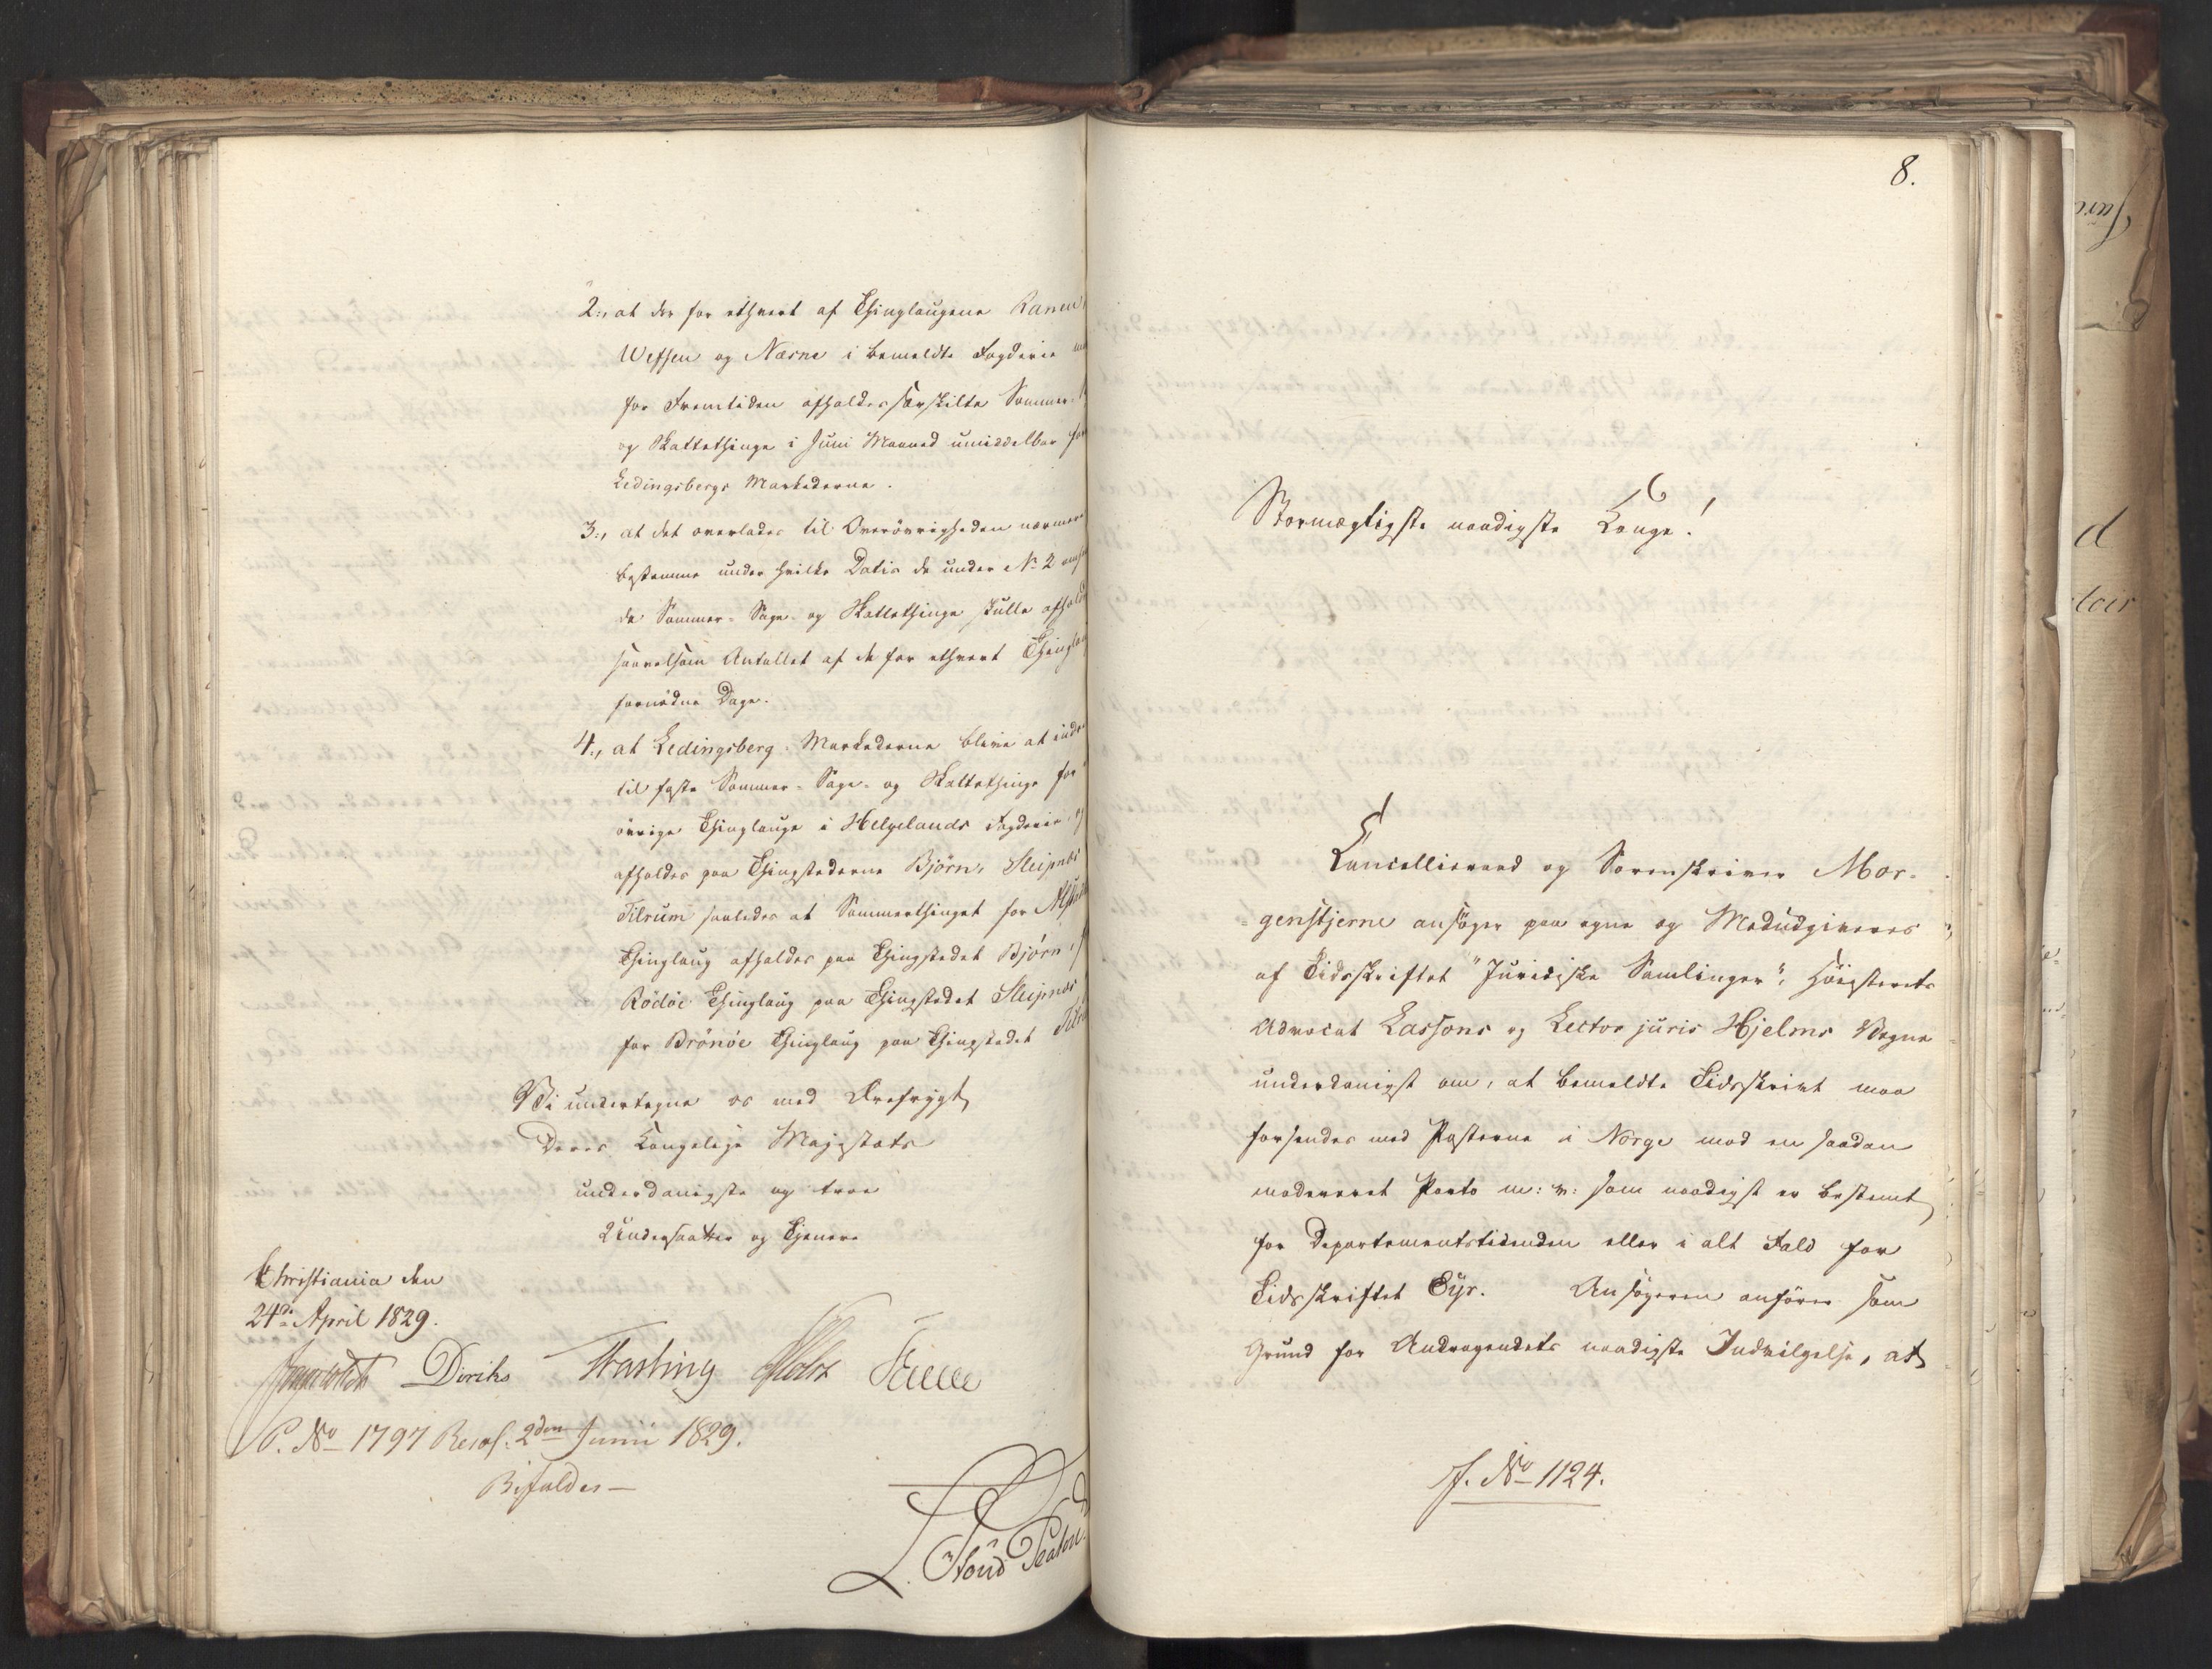 2., at der for ethvert af Thinglaugene Ranen,
Wefsen og Næsne i bemeldte Fogderie
for Fremtiden afholdes særskilte Sommer-
og Skattethinge i Juni Maaned umiddelbar før
Ledingsbergs Markederne.
3., at det overlades til Overøvrigheden nærmere
bestemme under hvilke Datis de under No 2
de Sommer- Sage- og Skattethinge skulle afhold
saavelsom Antallet af de for ethvert Thinglau
fornødne Dage.
4., at Ledingsberg-Markederne blive at
til faste Sommer- Sage- og Skattethinge for
øvrige Thinglauge i Helgelands Fogderie, og
afholdes paa Thingstederne Björn, Sleipnæs
Tilrum saaledes at Sommerthinget for
Thinglaug afholdes paa Thingstedet Björn,
Rödöe Thinglaug paa Thingstedet Sleipnæs
for Brönöe Thinglaug paa Thingstedet
Vi undertegne os med Ærefrygt
Deres Kongelige Majestæts
underdanigste og troe
Undersaatter og Tjenere
Christiania den
24de April 1829.
Diriks Trasting Holst Fasting
P. No 1797 Resol. 2den Junii 1829.
Bifaldes —
8.
Stormægtigste naadigste Konge!
Cancellieraad og Sorenskriver Mor-
genstjerne ansøger paa egne og Medudgiveres
af Tidsskriftet "Juridiske Samlinger", Høiesterets
Advocat Lassons og Lector juris Hjelms Vegne
underdanigst om, at bemeldte Tidsskrivt maa
forsendes med Posterne i Norge mod en saadan
modereret Porto m: v: som naadigst er bestemt
for Departementstidenden eller i alt Fald for
Tidsskriftet Eyr. Ansøgeren anfører som
Grund for Andragendets naadigste Indvilgelse, at
J. No 1124.